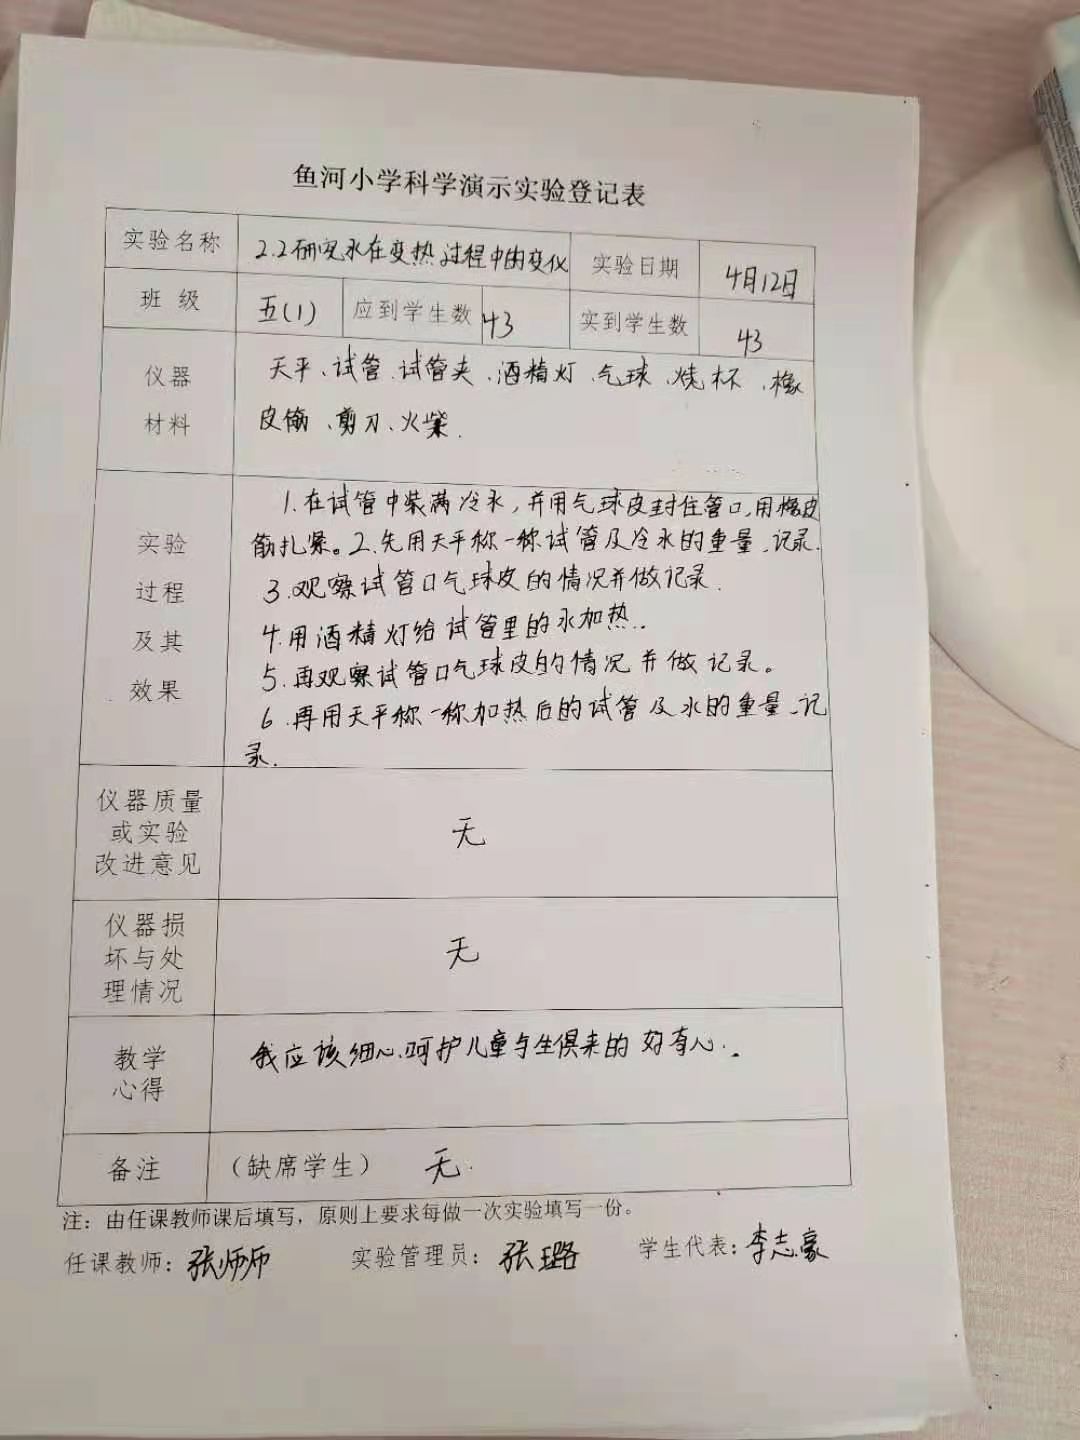 鱼河小学科学演示实验登记表
实验名称 2.2研究水在变热过程中的变化 实验日期 4月12日
班 级 五(1) 应到学生数 43 实到学生数 43
仪器 天平、试管、试管夹、酒精灯、气球、烧杯、橡
材料 皮筋、剪刀、火柴.
1.在试管中装满冷水,并用气球皮封住管口,用橡皮
实验 筋扎紧。2.先用天平称一称试管及冷水的重量、记录.
过程 3.观察试管口气球皮的情况并做记录.
及其 4.用酒精灯给试管里的水加热.
效果 5.再观察试管口气球皮的情况并做记录。
6.再用天平称一称加热后的试管及水的重量、记
录.
仪器质量
或实验 无
改进意见
仪器损
坏与处 无
理情况
教学 我应该细心呵护儿童与生俱来的好奇心.
心得
备注 (缺席学生) 无.
注:由任课教师课后填写,原则上要求每做一次实验填写一份。
任课教师:张师师 实验管理员:张璐 学生代表:李志豪